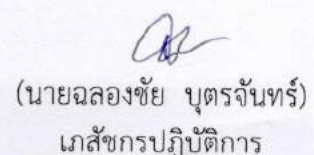 (นายฉลองชัย บุตรจันทร์)
เภสัชกรปฏิบัติการ